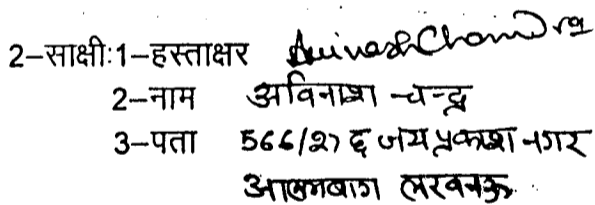 2–साक्षीः1–हस्ताक्षर AvinashChandra
2–नाम अविनाश चन्द्र
3–पता 566/27 छ जय प्रकाश नगर
आलमबाग लखनऊ